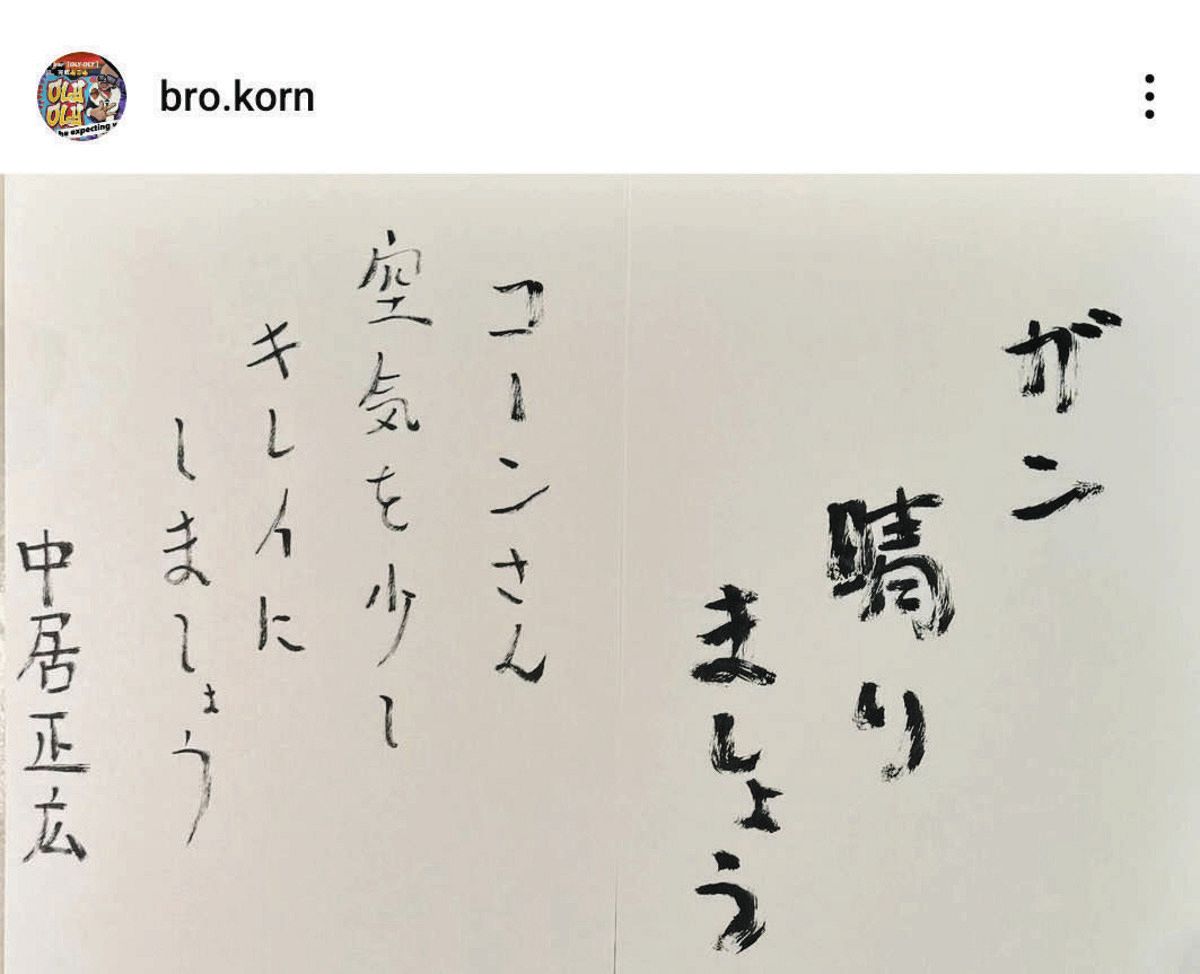 bro.korn
OLY
OLY
be expecting
ガン
晴り
ましょう
コーンさん
空気を少し
キレイに
しましょう
中居正広